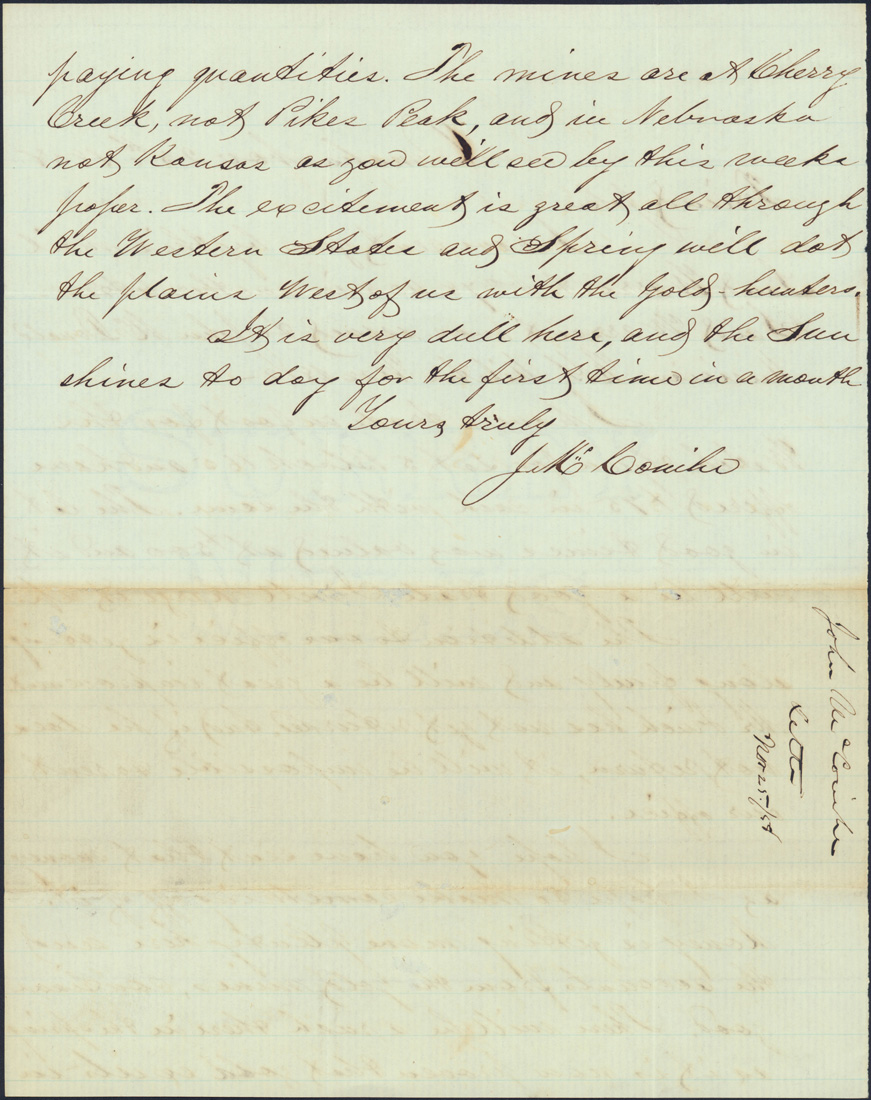 paying quantities. The mines are at Cherry
Creek, not Pikes Peak, and in Nebraska
not Kansas as you will see by this weeks
paper. The excitement is great all through
the Western States and Spring will dot
the plains West of us with the Gold-hunters.
It is very dull here, and the Sun
shines to day for the first time in a month
Yours truly
J McConihe
John McConihe
Letter
Nov 25/58